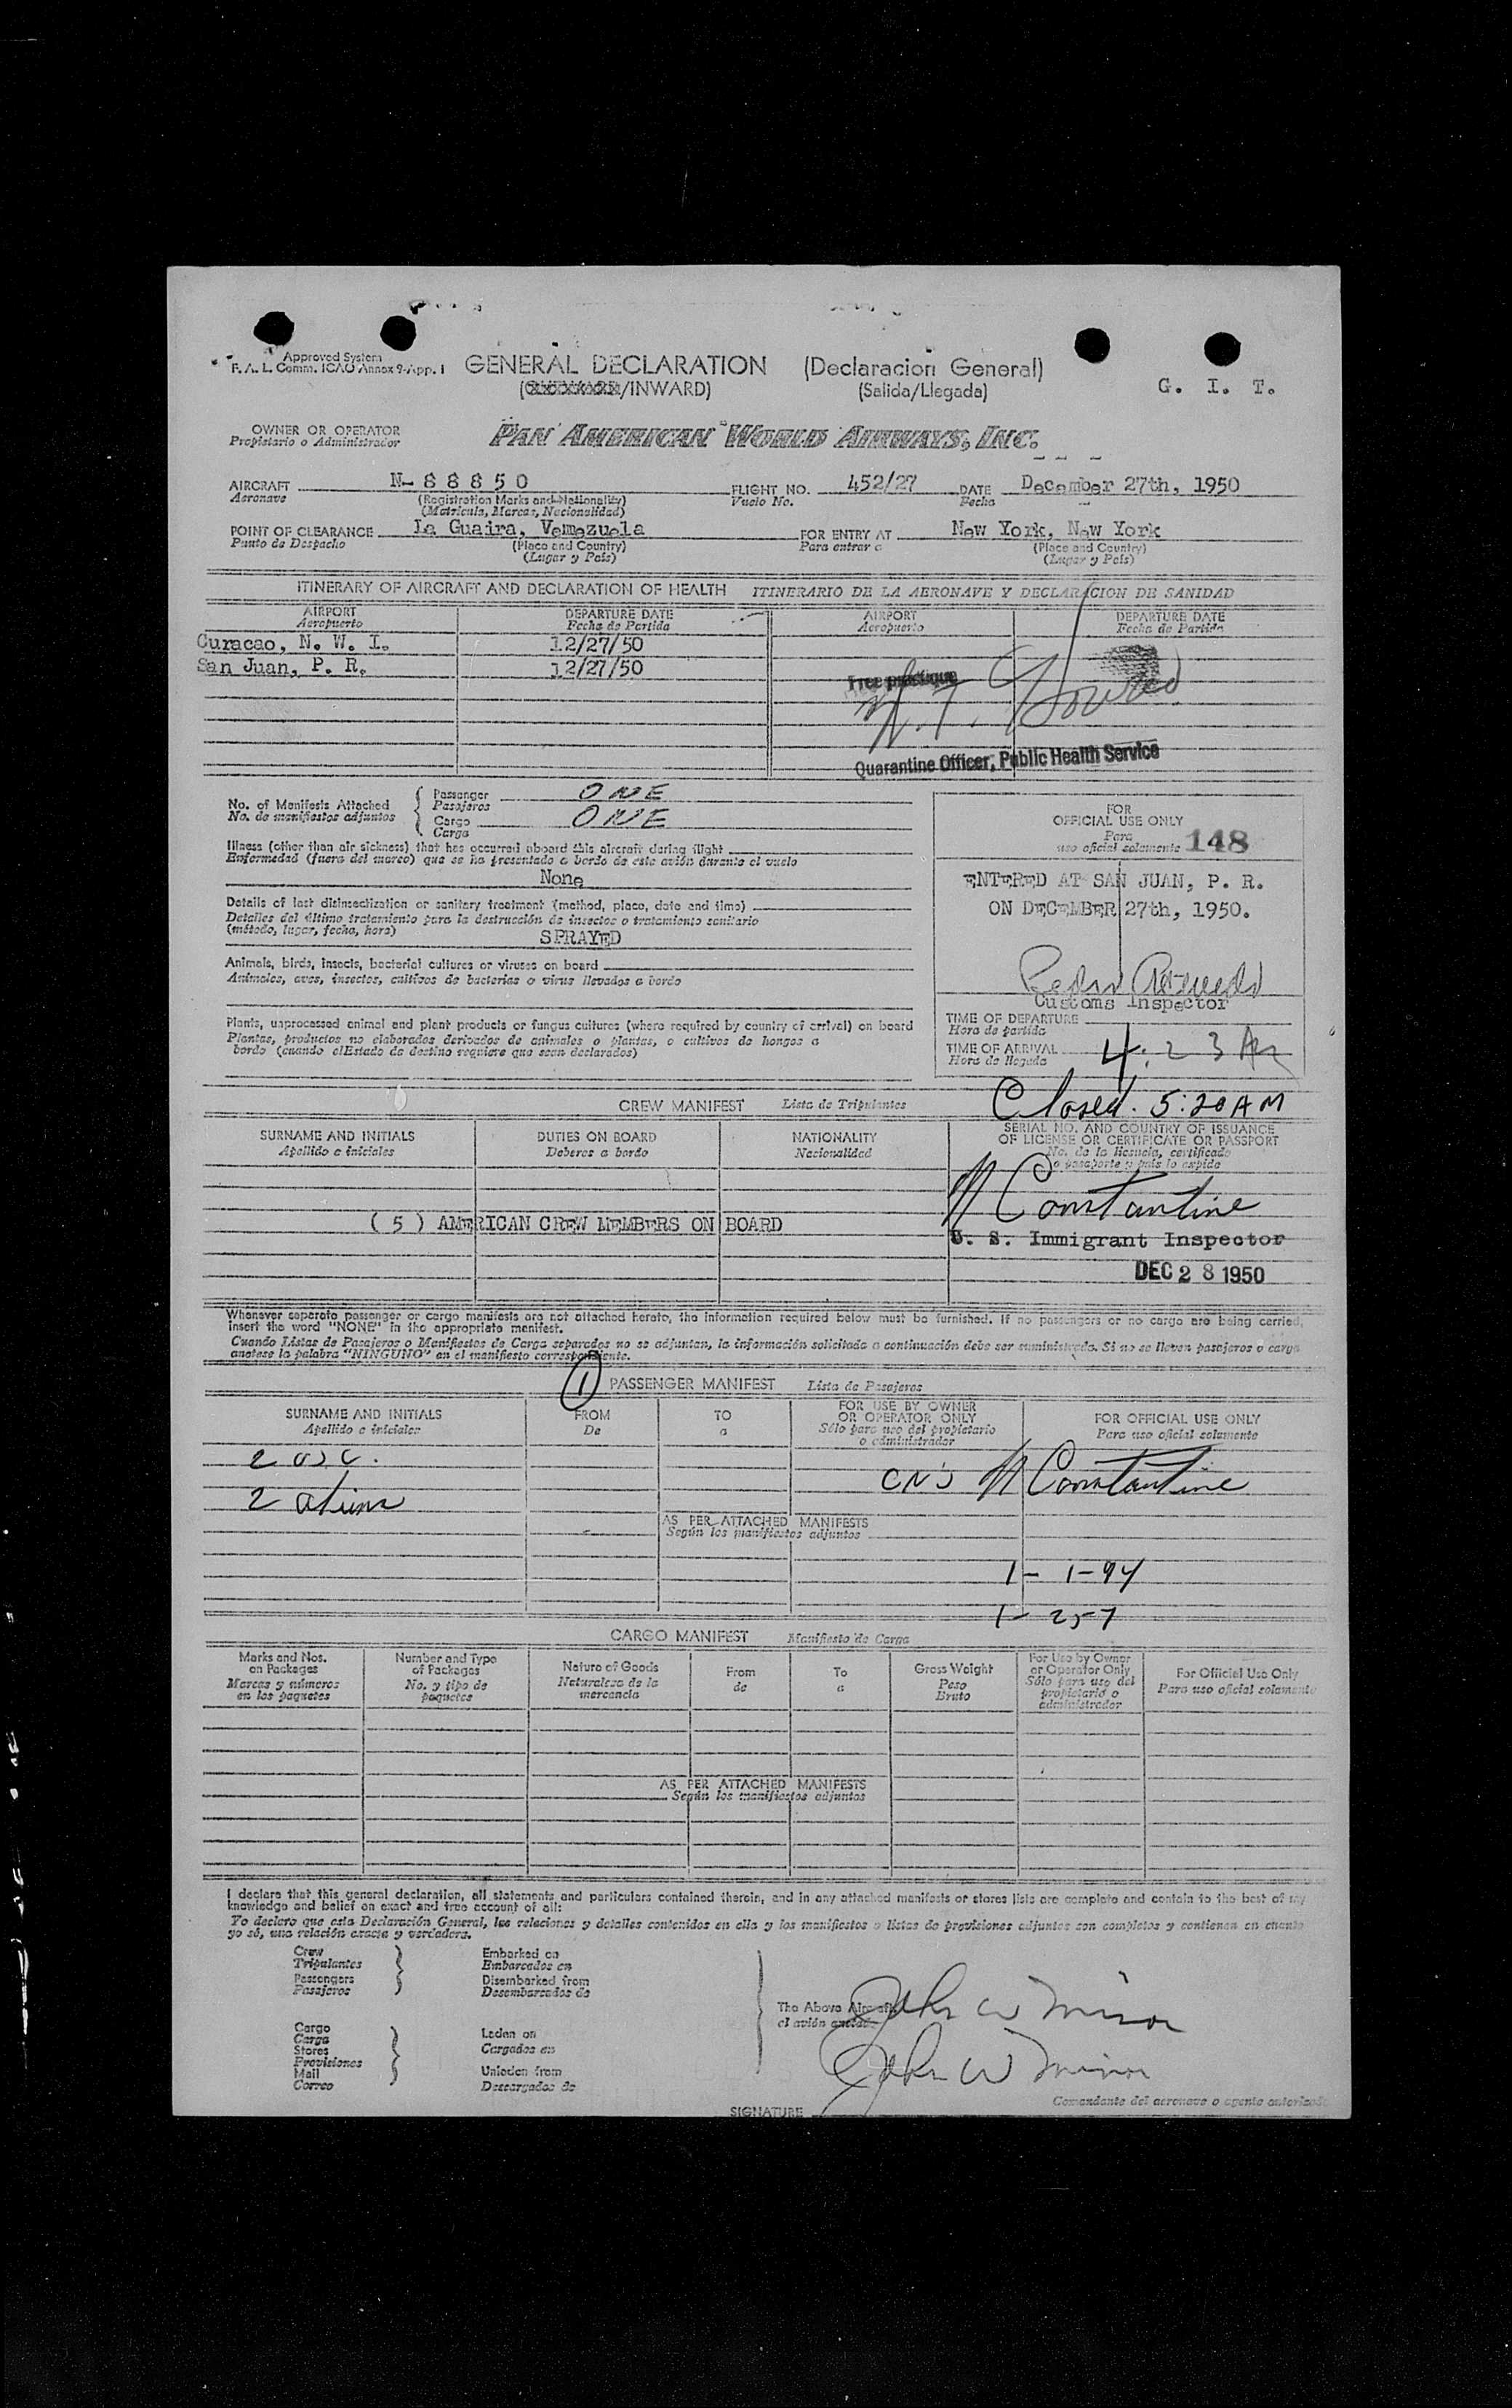 Approved System
F. A. L. Comm. ICAO Annex 9-App. I
GENERAL DECLARATION (Declaracion General)
/INWARD) (Salida/Llegada)
G. I. T.
OWNER OR OPERATOR
Propietario o Administrador
PAN AMERICAN WORLD AIRWAYS, INC.
AIRCRAFT N-88850 FLIGHT NO. 452/27 DATE December 27th, 1950
Aeronave (Registration Marks and Nationality) Vuelo No. Fecha
(Matricula, Marcas, Nacionalidad)
POINT OF CLEARANCE La Guaira, Vemezuela FOR ENTRY AT New York, New York
Punto de Despacho (Place and Country) Para entrar a (Place and Country)
(Lugar y País) (Lugar y País)
ITINERARY OF AIRCRAFT AND DECLARATION OF HEALTH ITINERARIO DE LA AERONAVE Y DECLARACION DE SANIDAD
AIRPORT DEPARTURE DATE AIRPORT DEPARTURE DATE
Aeropuerto Fecha de Partida Aeropuerto Fecha de Partida
Curacao, N. W. I. 12/27/50
San Juan, P. R. 12/27/50
Free pratique
Quarantine Officer, Public Health Service
No. of Manifests Attached
No. de manifiestos adjuntos
Passenger ONE
Pasajeros
Cargo ONE
Carga
Illness (other than air sickness) that has occurred aboard this aircraft during flight
Enfermedad (fuera del mareo) que se ha presentado a bordo de este avión durante el vuelo
None
Details of last disinsectization or sanitary treatment (method, place, date and time)
Detalles del último tratamiento para la destrucción de insectos o tratamiento sanitario
(método, lugar, fecha, hora)
SPRAYED
Animals, birds, insects, bacterial cultures or viruses on board
Animales, aves, insectos, cultivos de bacterias o virus llevados a bordo
Plants, unprocessed animal and plant products or fungus cultures (where required by country of arrival) on board
Plantas, productos no elaborados derivados de animales o plantas, o cultivos de hongos a
bordo (cuando elEstado de destino requiere que sean declarados)
FOR
OFFICIAL USE ONLY
Para
uso oficial solamente 148
ENTERED AT SAN JUAN, P. R.
ON DECEMBER 27th, 1950.
Customs Inspector
TIME OF DEPARTURE
Hora de partida
TIME OF ARRIVAL 4:23 AM
Hora de llegada
Closed. 5:20 AM
CREW MANIFEST Lista de Tripulantes
SURNAME AND INITIALS DUTIES ON BOARD NATIONALITY SERIAL NO. AND COUNTRY OF ISSUANCE
OF LICENSE OR CERTIFICATE OR PASSPORT
Apellido e iniciales Deberes a bordo Nacionalidad No. de la licencia, certificado
o pasaporte y pais lo expide
( 5 ) AMERICAN CREW MEMBERS ON BOARD
Constantine
U. S. Immigrant Inspector
DEC 28 1950
Whenever separate passenger or cargo manifests are not attached hereto, the information required below must be furnished. If no passengers or no cargo are being carried,
insert the word "NONE" in the appropriate manifest.
Cuando Listas de Pasajeros o Manifiestos de Carga separados no se adjuntan, la información solicitada a continuación debe ser suministrada. Si no se llevan pasajeros o carga
anotese la palabra "NINGUNO" en el manifiesto correspondiente.
1 PASSENGER MANIFEST Lista de Pasajeros
SURNAME AND INITIALS FROM TO FOR USE BY OWNER
OR OPERATOR ONLY FOR OFFICIAL USE ONLY
Apellido e iniciales De a Sólo para uso del propietario
o administrador Para uso oficial solamente
2 usc.
2 aliens
Constantine
AS PER ATTACHED MANIFESTS
Según los manifiestos adjuntos
1- 1-94
1- 257
CARGO MANIFEST Manifiesto de Carga
Marks and Nos.
on Packages
Marcas y números
en los paquetes
Number and Type
of Packages
No. y tipo de
paquetes
Nature of Goods
Naturaleza de la
mercancia
From
de
To
a
Gross Weight
Peso
Bruto
For Use by Owner
or Operator Only
Sólo para uso del
propietario o
administrador
For Official Use Only
Para uso oficial solamente
AS PER ATTACHED MANIFESTS
Según los manifiestos adjuntos
I declare that this general declaration, all statements and particulars contained therein, and in any attached manifests or stores lists are complete and contain to the best of my
knowledge and belief an exact and true account of all:
Yo declaro que esta Declaración General, las relaciones y detalles contenidos en ella y los manifiestos o listas de provisiones adjuntos son completos y contienen en cuanto
yo sé, una relación exacta y verdadera.
Crew
Tripulantes
Passengers
Pasajeros
Embarked on
Embarcados en
Disembarked from
Desembarcados de
Cargo
Carga
Stores
Provisiones
Mail
Correo
Laden on
Cargados en
Unladen from
Descargados de
The Above Aircraft
el avión
John W Minor
John W Minor
SIGNATURE
Comandante del aeronave o agente autorizado